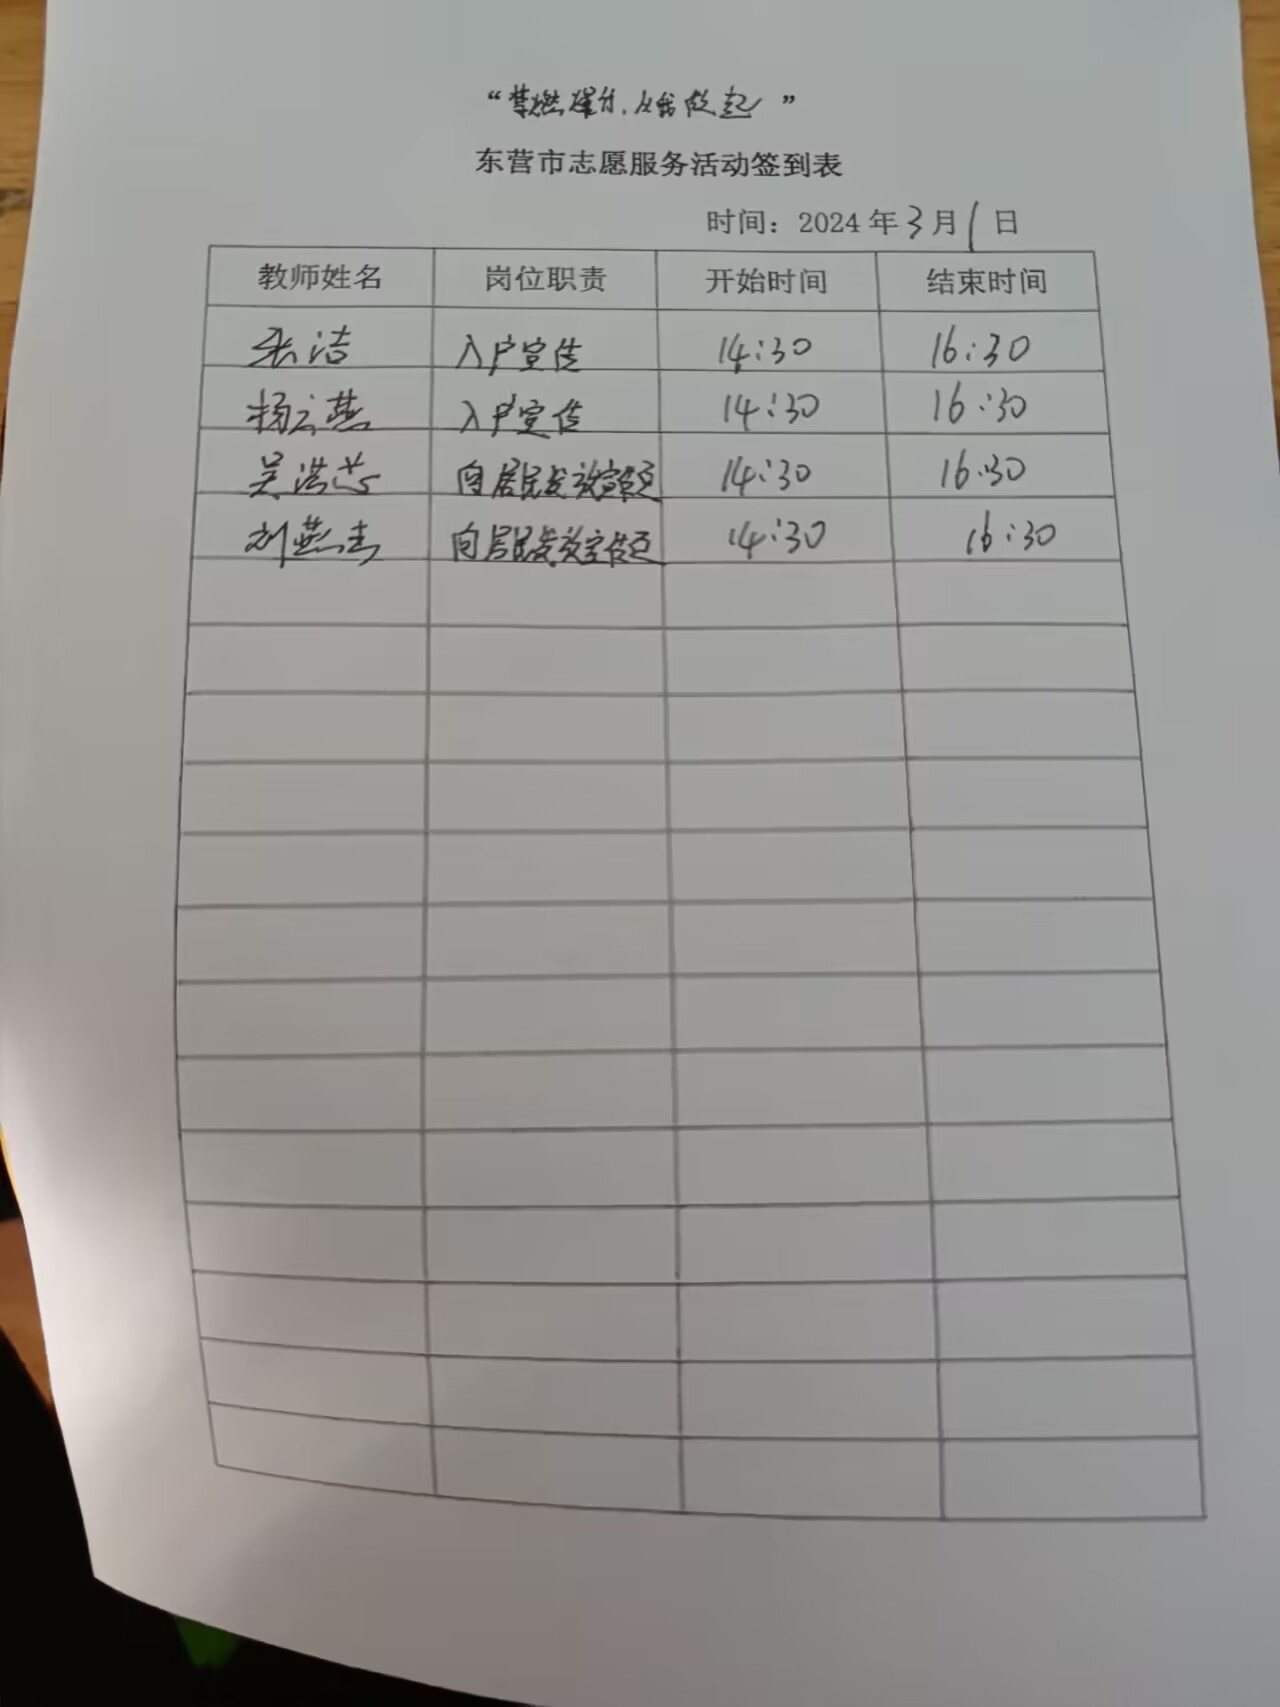 “禁燃爆竹，从我做起”
东营市志愿服务活动签到表
时间：2024年3月1日
教师姓名 岗位职责 开始时间 结束时间
张洁 入户宣传 14:30 16:30
杨云燕 入户宣传 14:30 16:30
吴洪芯 向居民发放宣传页 14:30 16:30
刘燕杰 向居民发放宣传页 14:30 16:30